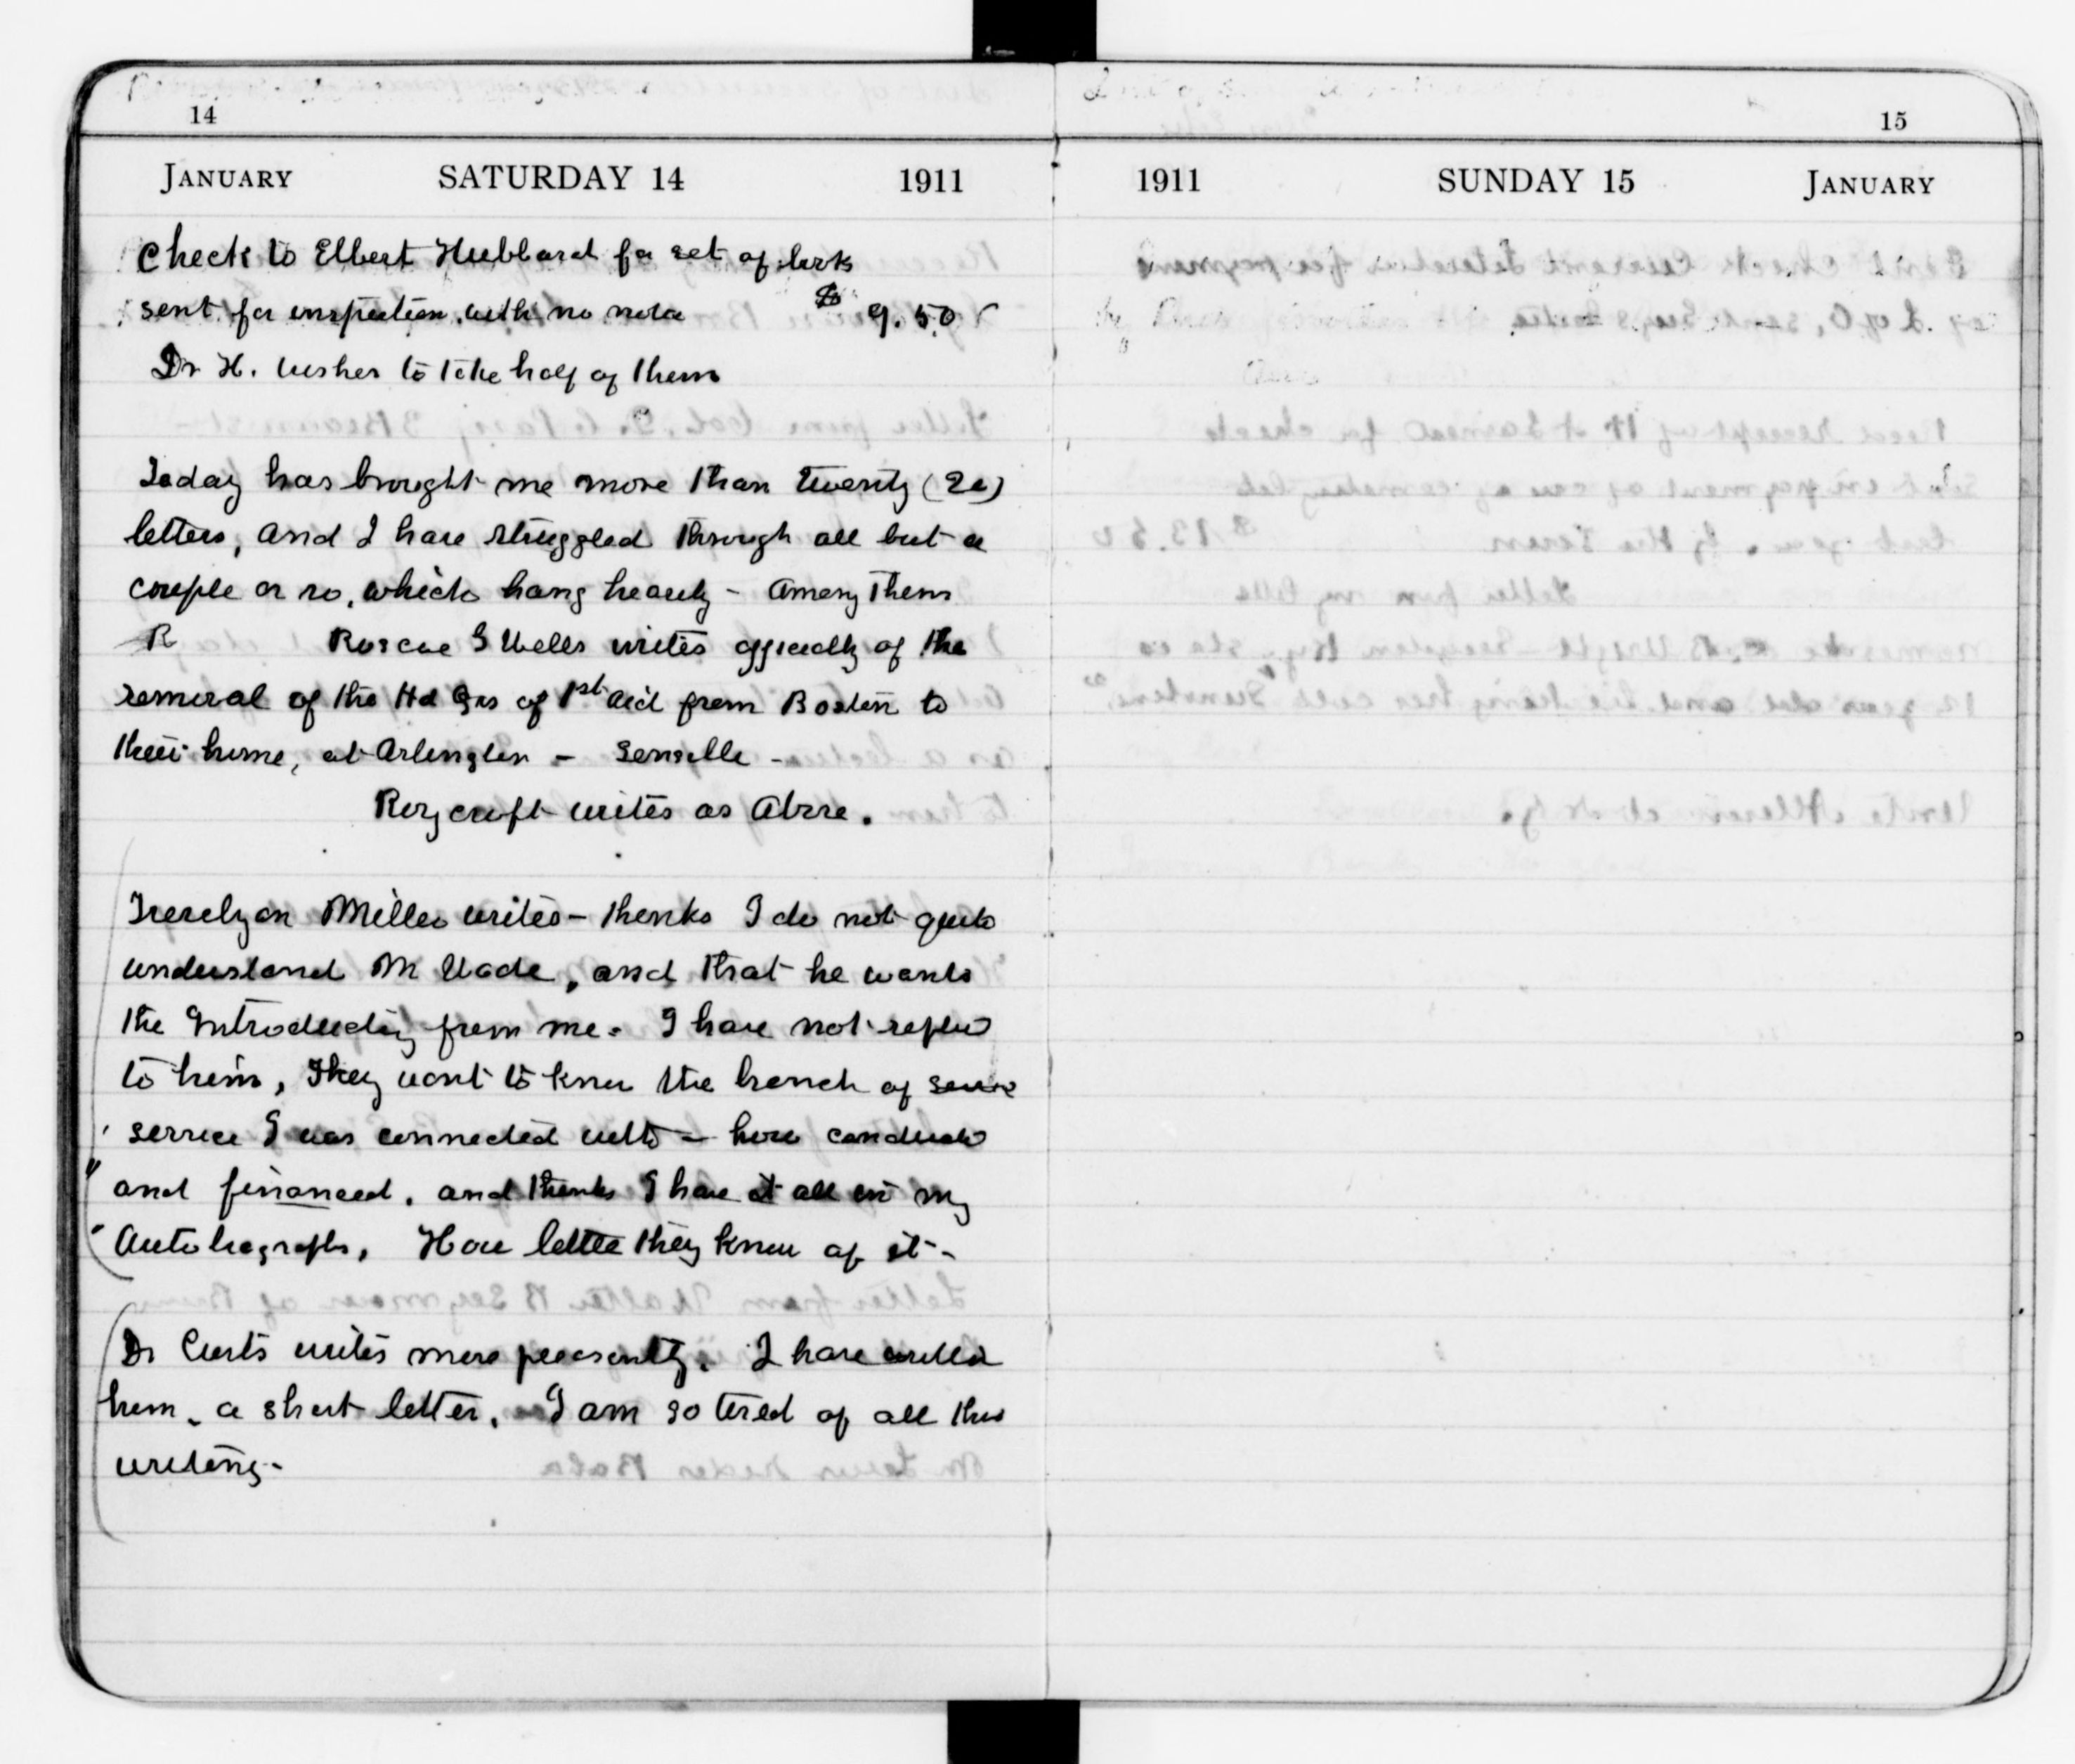 14
JANUARY SATURDAY 14 1911
Check to Elbert Hubbard for set of books
sent for inspection with no note $ 9.50
Dr H. wishes to take half of them
Today has brought me more than twenty (20)
letters, and I have struggled through all but a
couple or so, which hang heavily - Among them
R Roscoe G Wells writes officially of the
removal of the Hd Qrs of 1st Aid from Boston to
their home, at Arlington -
Roycroft writes as above.
Miller writes - thinks I do not quite
understand Mr Wade, and that he wants
the Introductory from me. I have not replied
to him, They want to know the branch of
service I was connected with - how conducted
and financed, and thinks I have it all in my
Autobiography, How little they know of it -
Dr Curtis writes more pleasantly. I have written
him a short letter. I am so tired of all this
writing -
15
1911 SUNDAY 15 JANUARY